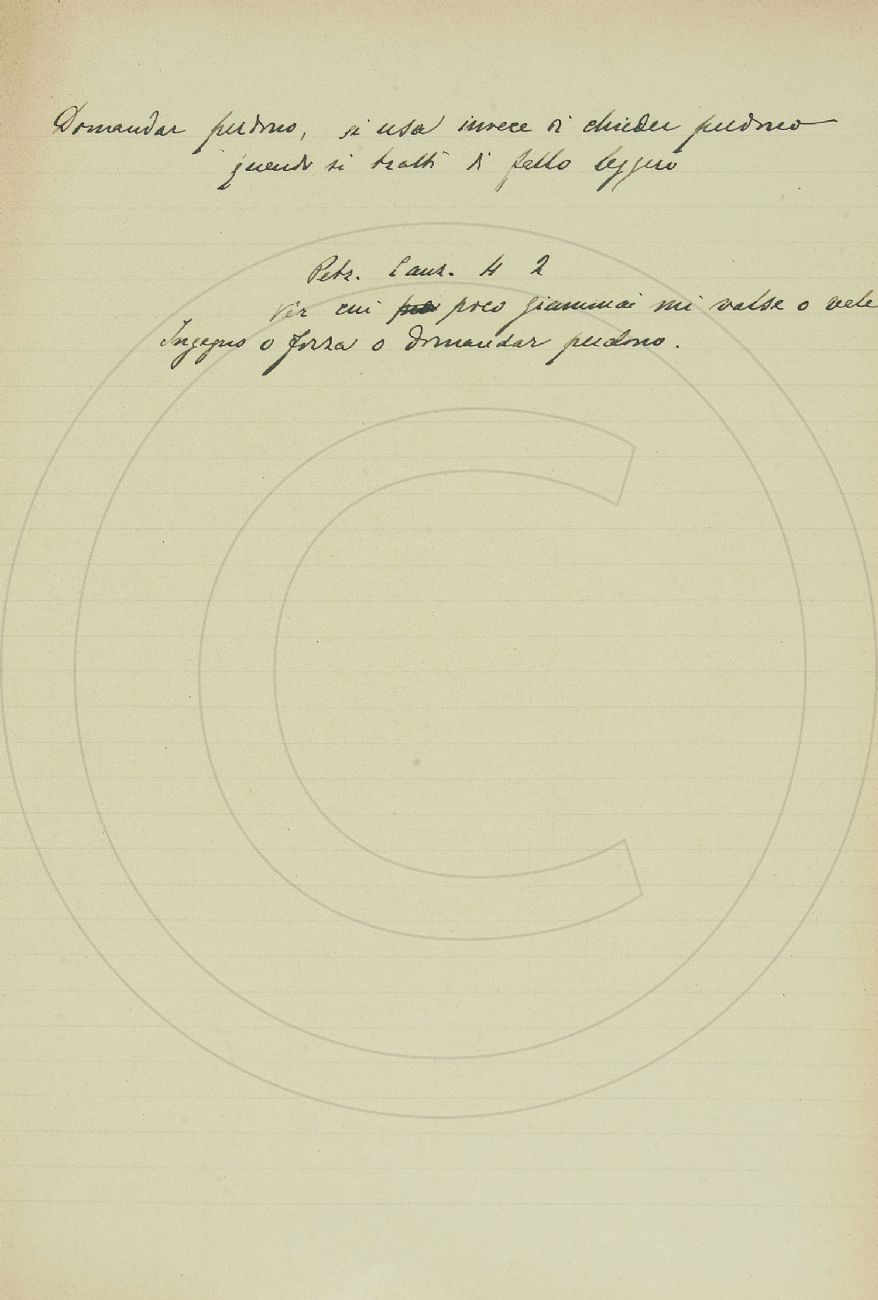 Domandar perdono, si usa invece di chieder perdono
quando si tratti di fallo leggero
Petr. Canz. 4 2
Per cui poco giammai mi valse o vale
Ingegno o forza o domandar perdono.